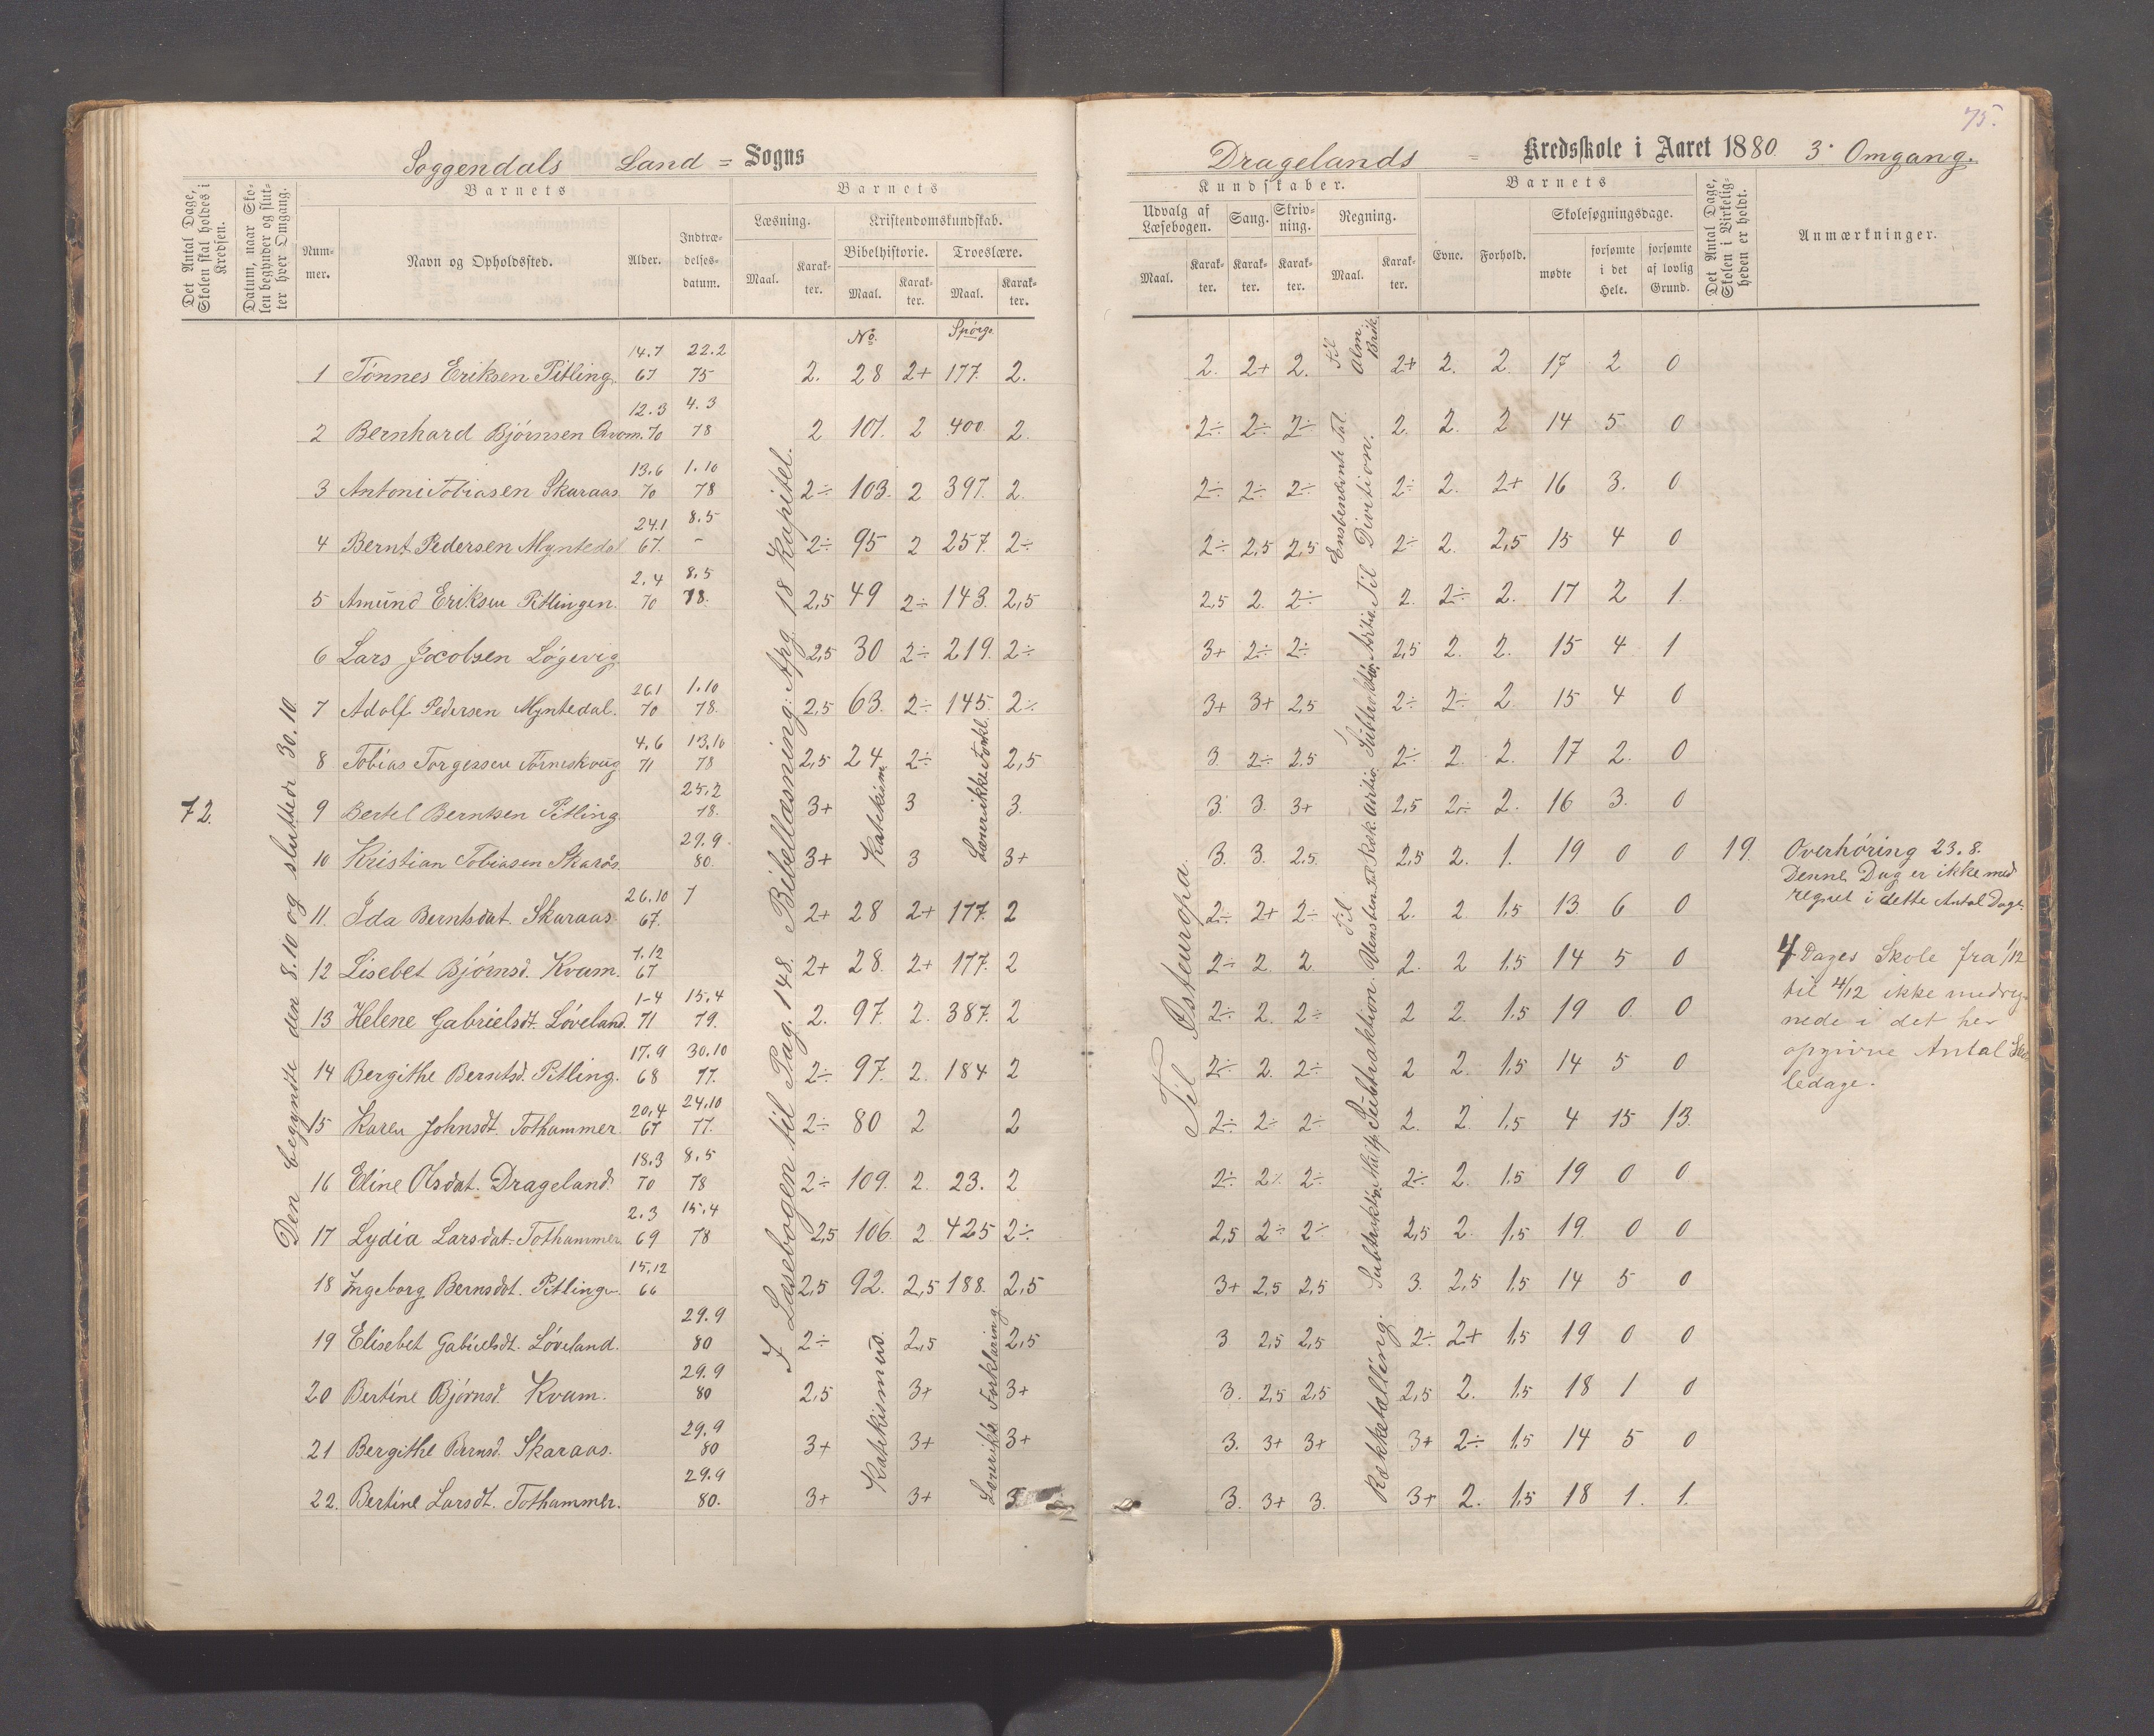 75.
Soggendals Land = Sogns
Dragelands = Kredsskole i Aaret 1880. 3. Omgang.
Det Antal Dage, Skolen skal holdes i Kredsen.
Datum, naar Skolen begynder og slutter hver Omgang.
Barnets
Nummer.
Navn og Opholdssted.
Alder.
Indtrædelsesdatum.
Barnets
Læsning.
Maal.
Karakter.
Kristendomskundskab.
Bibelhistorie.
Maal.
Karakter.
Troeslære.
Maal.
Karakter.
Kundskaber.
Udvalg af Læsebogen.
Maal.
Karakter.
Sang.
Karakter.
Skrivning.
Karakter.
Regning.
Maal.
Karakter.
Barnets
Evne.
Forhold.
Skolesøgningsdage.
mødte
forsømte i det Hele.
forsømte af lovlig Grund.
Det Antal Dage, Skolen i Virkeligheden er holdt.
Anmærkninger.
No. Spørgs.
72.
Den begyndte den 8.10 og sluttede 30.10.
I Læsebogen til Pag. 148. Bibellæsning: Apg. 18 Kapitel.
Katekism.
Lærer ikke Forkl.
Katekismus.
Lærer ikke Forklaring
Til Østeuropa.
Til Alm. Brik.
Ensbenævnte Tal
Til Division.
Rækketælling.
1 Tönnes Eriksen Pitling. 14.7 67 22.2 75 2. 28 2+ 177. 2. 2. 2+ 2. 2+ 2. 2. 17 2 0
2 Bernhard Bjørnsen Qvam. 12.3 70 4.3 78 2 101. 2 400 2. 2÷ 2÷ 2÷ 2. 2. 2 14 5 0
3 Antoni Tobiasen Skaraas 13.6 70 1.10 78 2÷ 103. 2 397. 2. 2÷ 2÷ 2÷ 2÷ 2. 2+ 16 3. 0
4 Bernt Pedersen Myntedal 24.1 67. 8.5 - 2÷ 95 2 257. 2÷ 2÷ 2,5 2,5 2÷ 2. 2,5 15 4 0
5 Amund Eriksen Pitlingen. 2.4 70 8.5 78. 2,5 49 2÷ 143. 2,5 2,5 2. 2÷ 2. 2÷ 2. 17 2 1.
6 Lars Jacobsen Løgevig. 2,5 30 2÷ 219. 2÷ 3+ 2÷ 2÷ 2,5 2. 2. 15 4 1
7 Adolf Pedersen Myntedal. 26.1 70 1.10 78. 2,5 63. 2÷ 145. 2÷ 3+ 3+ 2,5 2÷ 2÷ 2. 15 4 0
8 Tobias Torgersen 4.6 71 13.10 78 2,5 24 2÷ 2,5 3. 2÷ 2.5 2÷ 2. 2. 17 2. 0
9 Bertel Berntsen Pitling 25.2 78. 3+ 3 3. 3. 3. 3+ 2,5 2÷ 2. 16 3. 0
10 Kristian Tobiasen Skarås. 29.9. 80. 3+ 3 3+ 3. 3. 2.5. 2,5 2. 1. 19 0 0 19.
11. Ida Berntsdat. Skaraas 26.10 67. 2+ 28 2+ 177. 2 2÷ 2+ 2÷ 2. 2. 1.5 13. 6 0
12 Lisebet Bjørnsd. Kvam. 7.12 67 2+ 28. 2+ 177. 2 2÷ 2 2 2. 2 1.5 14 5 0
13 Helene Gabrielsdt. Løveland. 1-4 71 15.4 79. 2. 97. 2. 387. 2 2÷ 2. 2÷ 2 2. 1.5 19 0. 0
14 Bergithe Berntsd. Pitling. 17.9 68 30.10 77. 2÷ 97. 2. 184 2 2÷ 2. 2÷ 2 2. 1.5 14 5 0
15 Karen Johnsdt. Tothammer 20.4 67 24.10 77. 2÷ 80 2 2 2÷ 2÷ 2÷ 2. 2. 1.5 4 15 13.
16 Eline Olsdat. Drageland. 18.3 70 8.5 78 2÷ 109. 2. 23. 2 2÷ 2÷ 2÷ 2÷ 2. 1.5 19 0 0
17 Lydia Larsdat. Tothammer 2.3 69 15.4 78 2,5 106. 2. 425 2÷ 2,5 2÷ 2÷ 2,5 2. 1,5 19. 0 0
18 Ingeborg Bernsdt. Pitling. 15,12 66 2,5 92. 2,5 188. 2,5 3+ 2,5 2,5 3. 2,5 1,5 14 5 0
19 Elisebet Gabrielsdt. Løveland. 29.9 80 2÷ 2,5 2,5 3 2,5 2,5 2÷ 2+ 1,5 19 0 0
20 Bertine Bjørnsd. Kvam. 29.9 80 2,5 3+ 3+ 3. 2,5 2,5 2,5 2. 1,5 18 1 0
21 Bergithe Bernsd. Skaraas. 29.9 80 3+ 3+ 3+ 3. 3+ 3+ 3+ 2÷ 1,5 14 5 0
22. Bertine Larsdt. Tothammer. 29.9 80. 3+ 3+ 3. 3+ 3. 3+ 2. 1,5 18 1. 1.
Overhøring 23.8.
Denne Dag er ikke med
regnet i dette Antal Dage.
4 Dages Skole fra 1/12
til 4/12 ikke medreg-
nede i det her
opgivne Antal Sko
ledage.